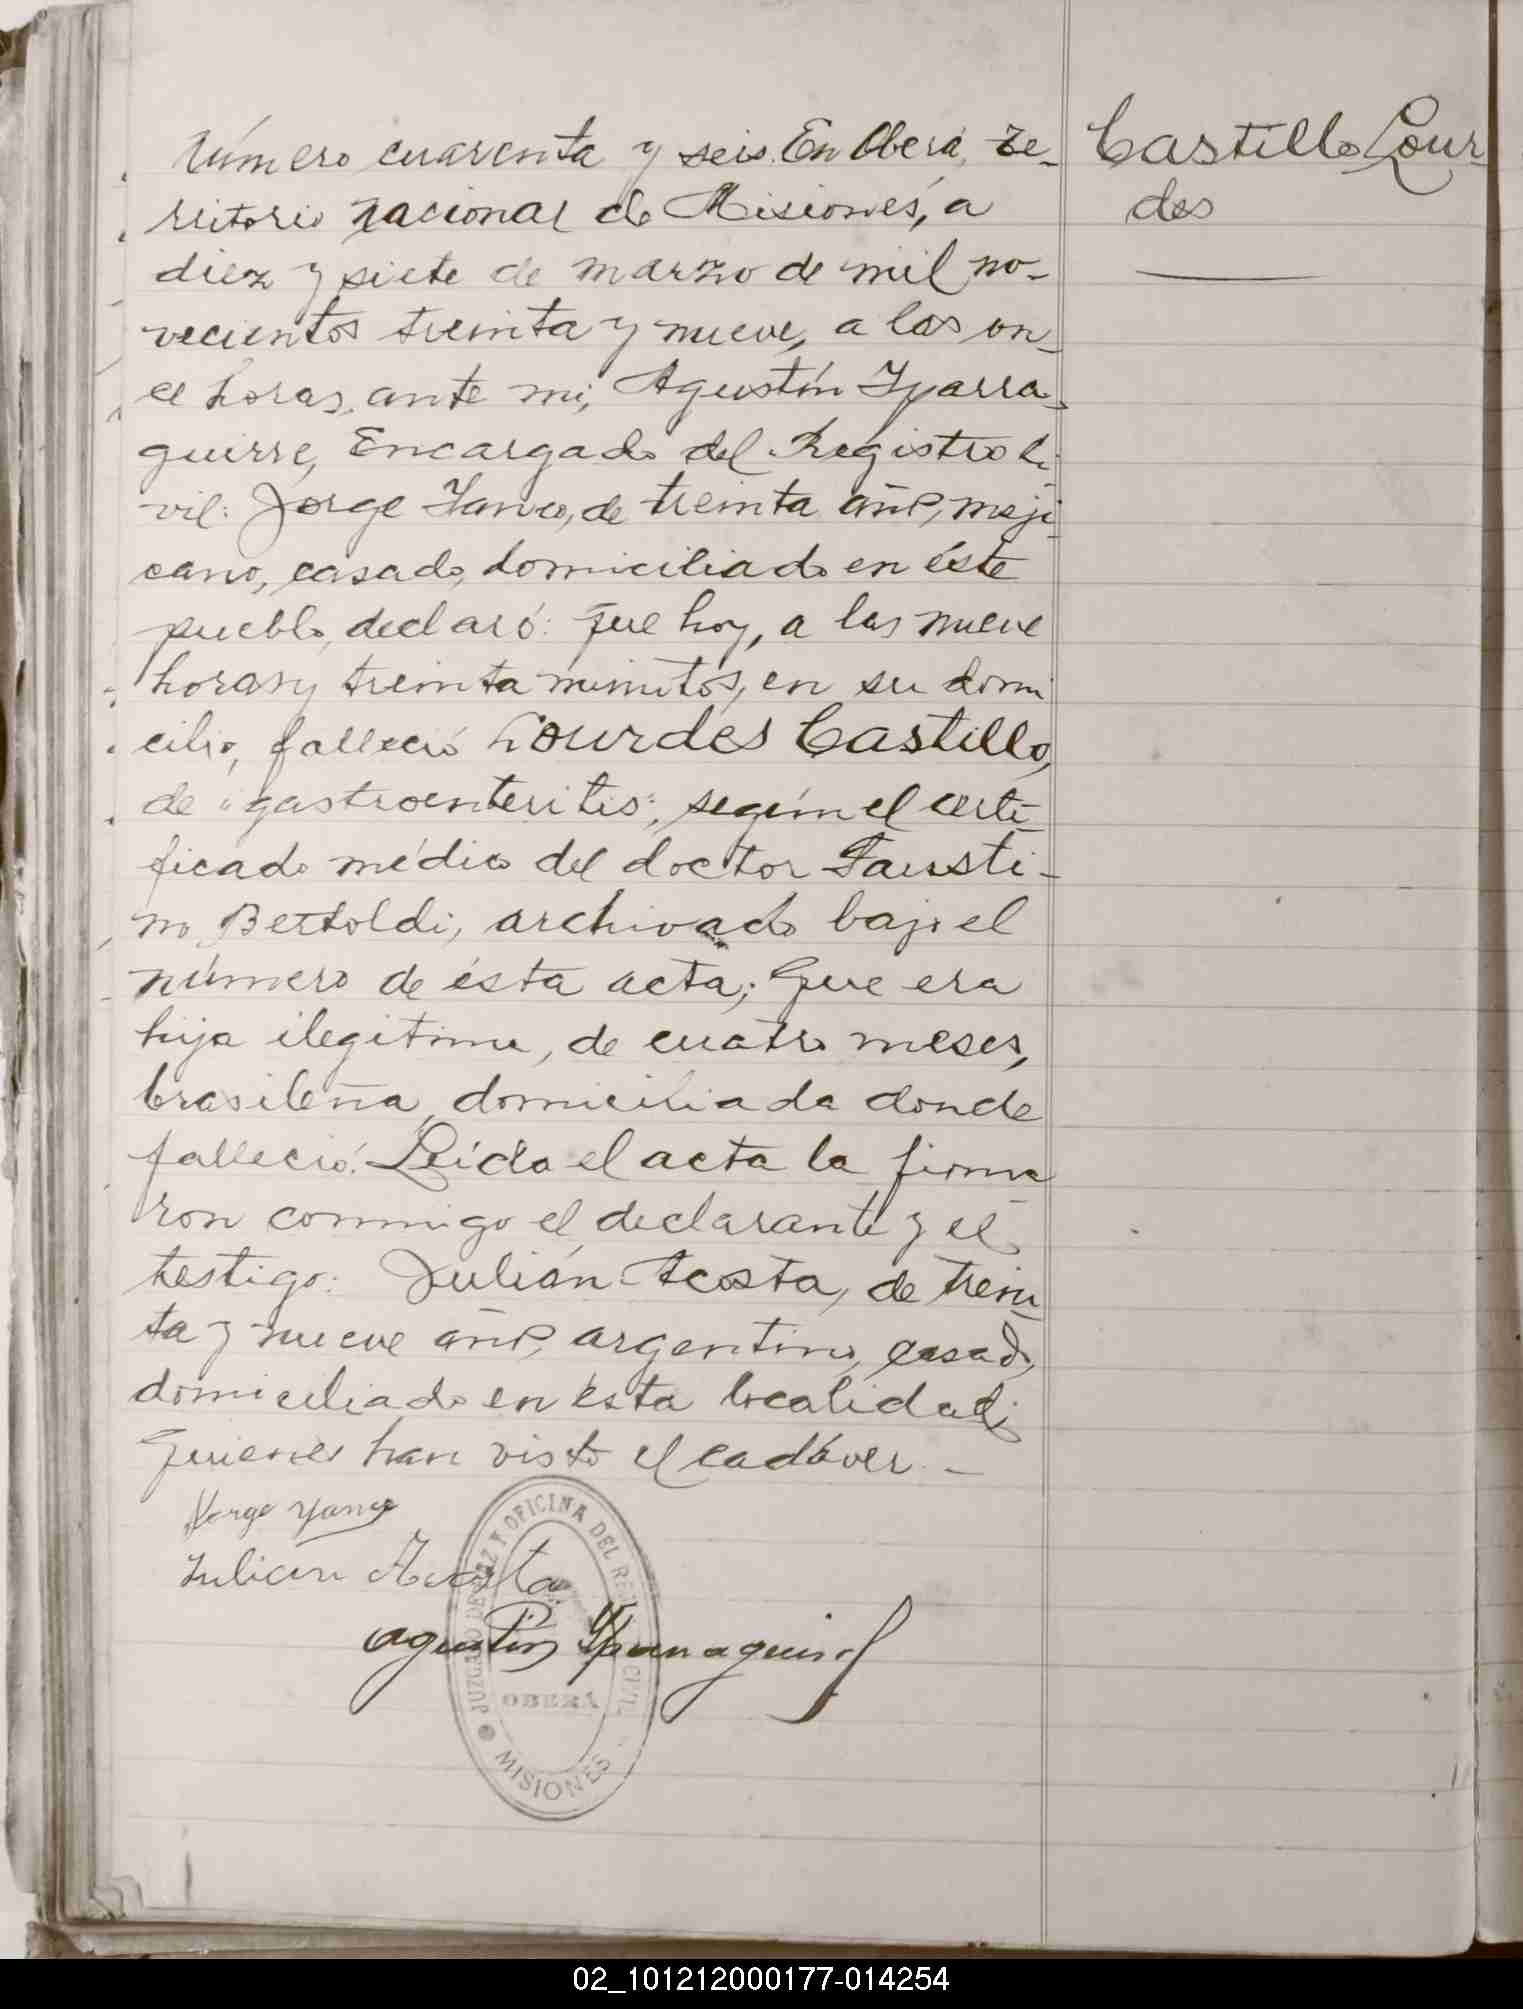 Número cuarenta y seis. En Oberá, Te-
rritorio nacional de Misiones, a
diez y siete de marzo de mil no-
vecientos treinta y nueve, a las on-
ce horas, ante mi, Agustín Yparra-
guirre, Encargado del Registro Ci-
vil: Jorge Yanco, de treinta años, meji-
cano, casado, domiciliado en éste
pueblo, declaró: Que hoy, a las nueve
horas y treinta minutos, en su domi
cilio, falleció Lourdes Castillo,
de "gastroenteritis", según el certi-
ficado médico del doctor Fausti-
no Bertoldi, archivado bajo el
número de ésta acta; Que era
hija ilegitima, de cuatro meses,
brasileña, domiciliada donde
falleció. Leída el acta la firma
ron conmigo el declarante y el
testigo: Julián Acosta, de trein-
ta y nueve años, argentino, casado,
domiciliado en ésta localidad;
Quienes han visto el cadáver. -
Jorge Yanco
Julian Acosta
Agustin Yparraguirre
JUZGADO DE PAZ Y OFICINA DEL REGISTRO CIVIL
OBERÁ
MISIONES
Castillo Lour-
des
02_101212000177-014254